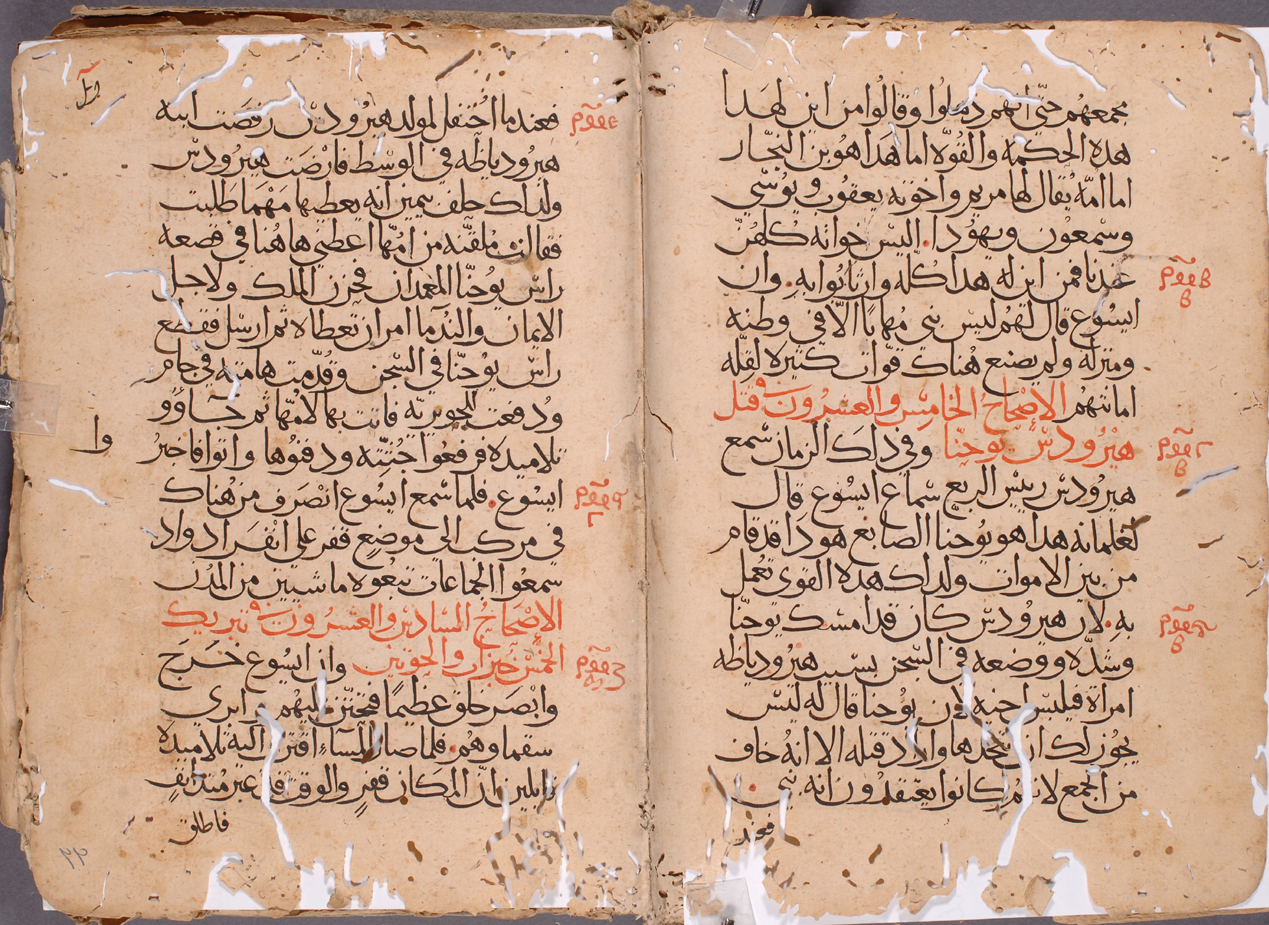 مجمعهم حتي انهم دهلوا وقالوا من اين لهدا
هده الحكمه والقوه اما هدا هو بن النجار
اما امه يقال لها مريم واخوته يعقوب ويوسي
وسمعون ويهودا. اليس خواته كلهن
عندنا فمن اين له هدا كله وارتابوا به. وان
ايسوع قال لهم ليس نبي مهانا الا في وطنه
ومنزله ولم يصنع هناك قوات كتيره لقله
امانتهم الاصحاح الخامس والعشرون في قتل
هيرودس يوحنا وفي داك الزمان سمع
هيرودس رييس الربع سماع ايسوع قال
لغلمانه هدا هو يوحنا الصابغ هودا قد قام
من بين الاموات ولداك هده القوي تعمل
به. لان هيرودس كان قد امسك يوحنا
وشده ووضعه في السجن بسبب هيرودياظه
امراة فيلبس اخيه لان يوحنا قال له ليس
يجوز لك ان تتخدها واراد قتله الا انه خاف
من الجمع لانهم كانوا يعتقدون انه نبي.
فعند
فعند ما احتفل لمولد هيرودس رقصت ابنه
هيرودياظه في الوسط فارضت هيرودس
ولداك حلف بيمين انه يعطيها مهما طلبت
فقالت ملقنه من امها اعطني هاهنا في قصعه
راس يوحنا المعمدان فحزن الملك ولاجل
الايمان والندما امر ان تعطاه ثم ارسل فقطع
راس يوحنا في السجن وقدمت هامته في جام
ودفعت للجويريه فاتت بها لامها ثم جاوو
تلاميده فرفعوا جتته ودفنوها واتوا فاخبرو
وا
ايسوع. فلما سمع ايسوع انصرف من هناك
في مركب الي موضع قفر علي انفراد واد
سمعوا الجماعات تبعوه ماشيين من المدن
الاصحاح السادس والعشرون في تبريك
الخمس خبزات والحوتين وان ايسوع خرج
وابصر خلق عظيما فتحنن عليهم وابري
سقماوهم. فلما صار المساء اقترب اليه تلاميده
قايلين ان المكان قفر والوقت قد عبر مند انف
فاطلق
٢٣